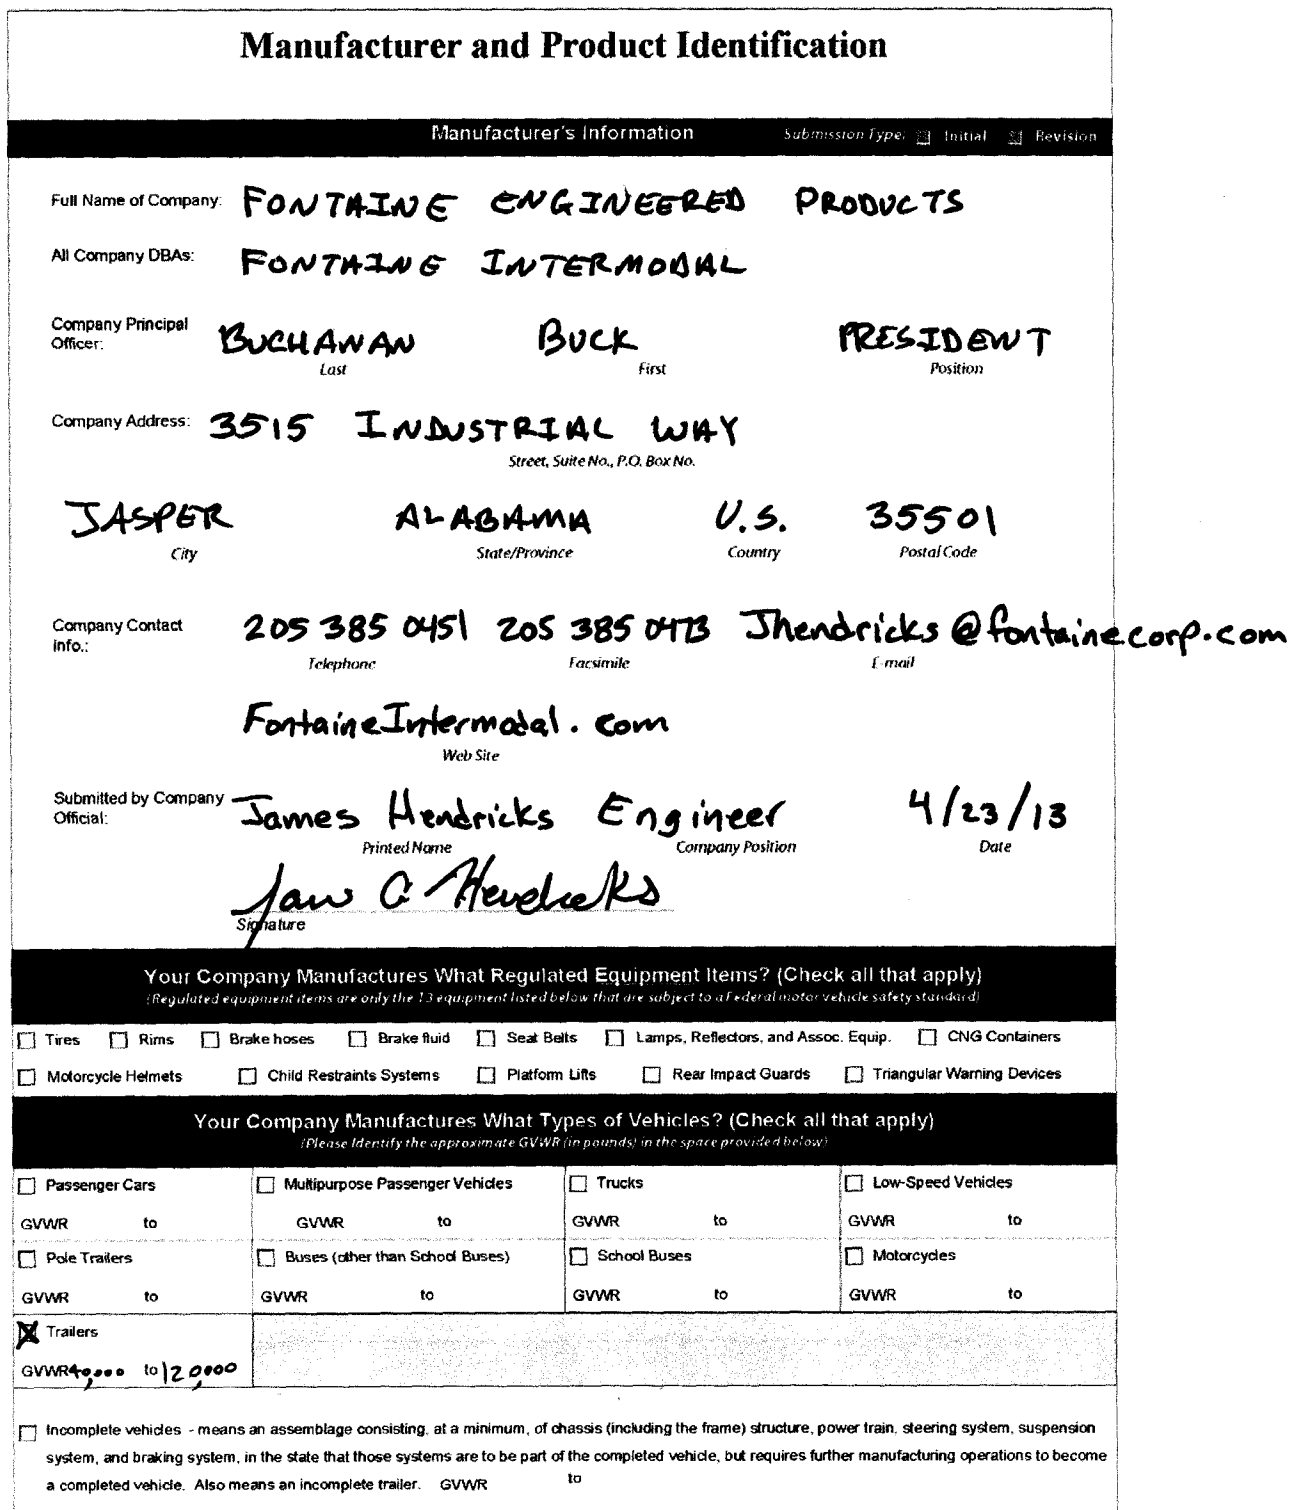 Manufacturer and Product Identification
Manufacturer's Information Submission Type: Initial Revision
Full Name of Company: FONTAINE ENGINEERED PRODUCTS
All Company DBAs: FONTAINE INTERMODAL
Company Principal Officer: BUCHANAN BUCK PRESIDENT
Last First Position
Company Address: 3515 INDUSTRIAL WAY
Street, Suite No., P.O. Box No.
JASPER ALABAMA U.S. 35501
City State/Province Country Postal Code
Company Contact Info.: 205 385 0451 205 385 0473 Jhendricks@fontainecorp.com
Telephone Facsimile E-mail
FontaineIntermodal.com
Web Site
Submitted by Company Official: James Hendricks Engineer 4/23/13
Printed Name Company Position Date
James A Hendricks
Signature
Your Company Manufactures What Regulated Equipment Items? (Check all that apply)
(Regulated equipment items are only the 13 equipment listed below that are subject to a Federal motor vehicle safety standard)
Tires Rims Brake hoses Brake fluid Seat Belts Lamps, Reflectors, and Assoc. Equip. CNG Containers
Motorcycle Helmets Child Restraints Systems Platform Lifts Rear Impact Guards Triangular Warning Devices
Your Company Manufactures What Types of Vehicles? (Check all that apply)
(Please Identify the approximate GVWR (in pounds) in the space provided below)
Passenger Cars Multipurpose Passenger Vehicles Trucks Low-Speed Vehicles
GVWR to GVWR to GVWR to GVWR to
Pole Trailers Buses (other than School Buses) School Buses Motorcycles
GVWR to GVWR to GVWR to GVWR to
X Trailers
GVWR 40,000 to 120,000
Incomplete vehicles - means an assemblage consisting, at a minimum, of chassis (including the frame) structure, power train, steering system, suspension
system, and braking system, in the state that those systems are to be part of the completed vehicle, but requires further manufacturing operations to become
a completed vehicle. Also means an incomplete trailer. GVWR to